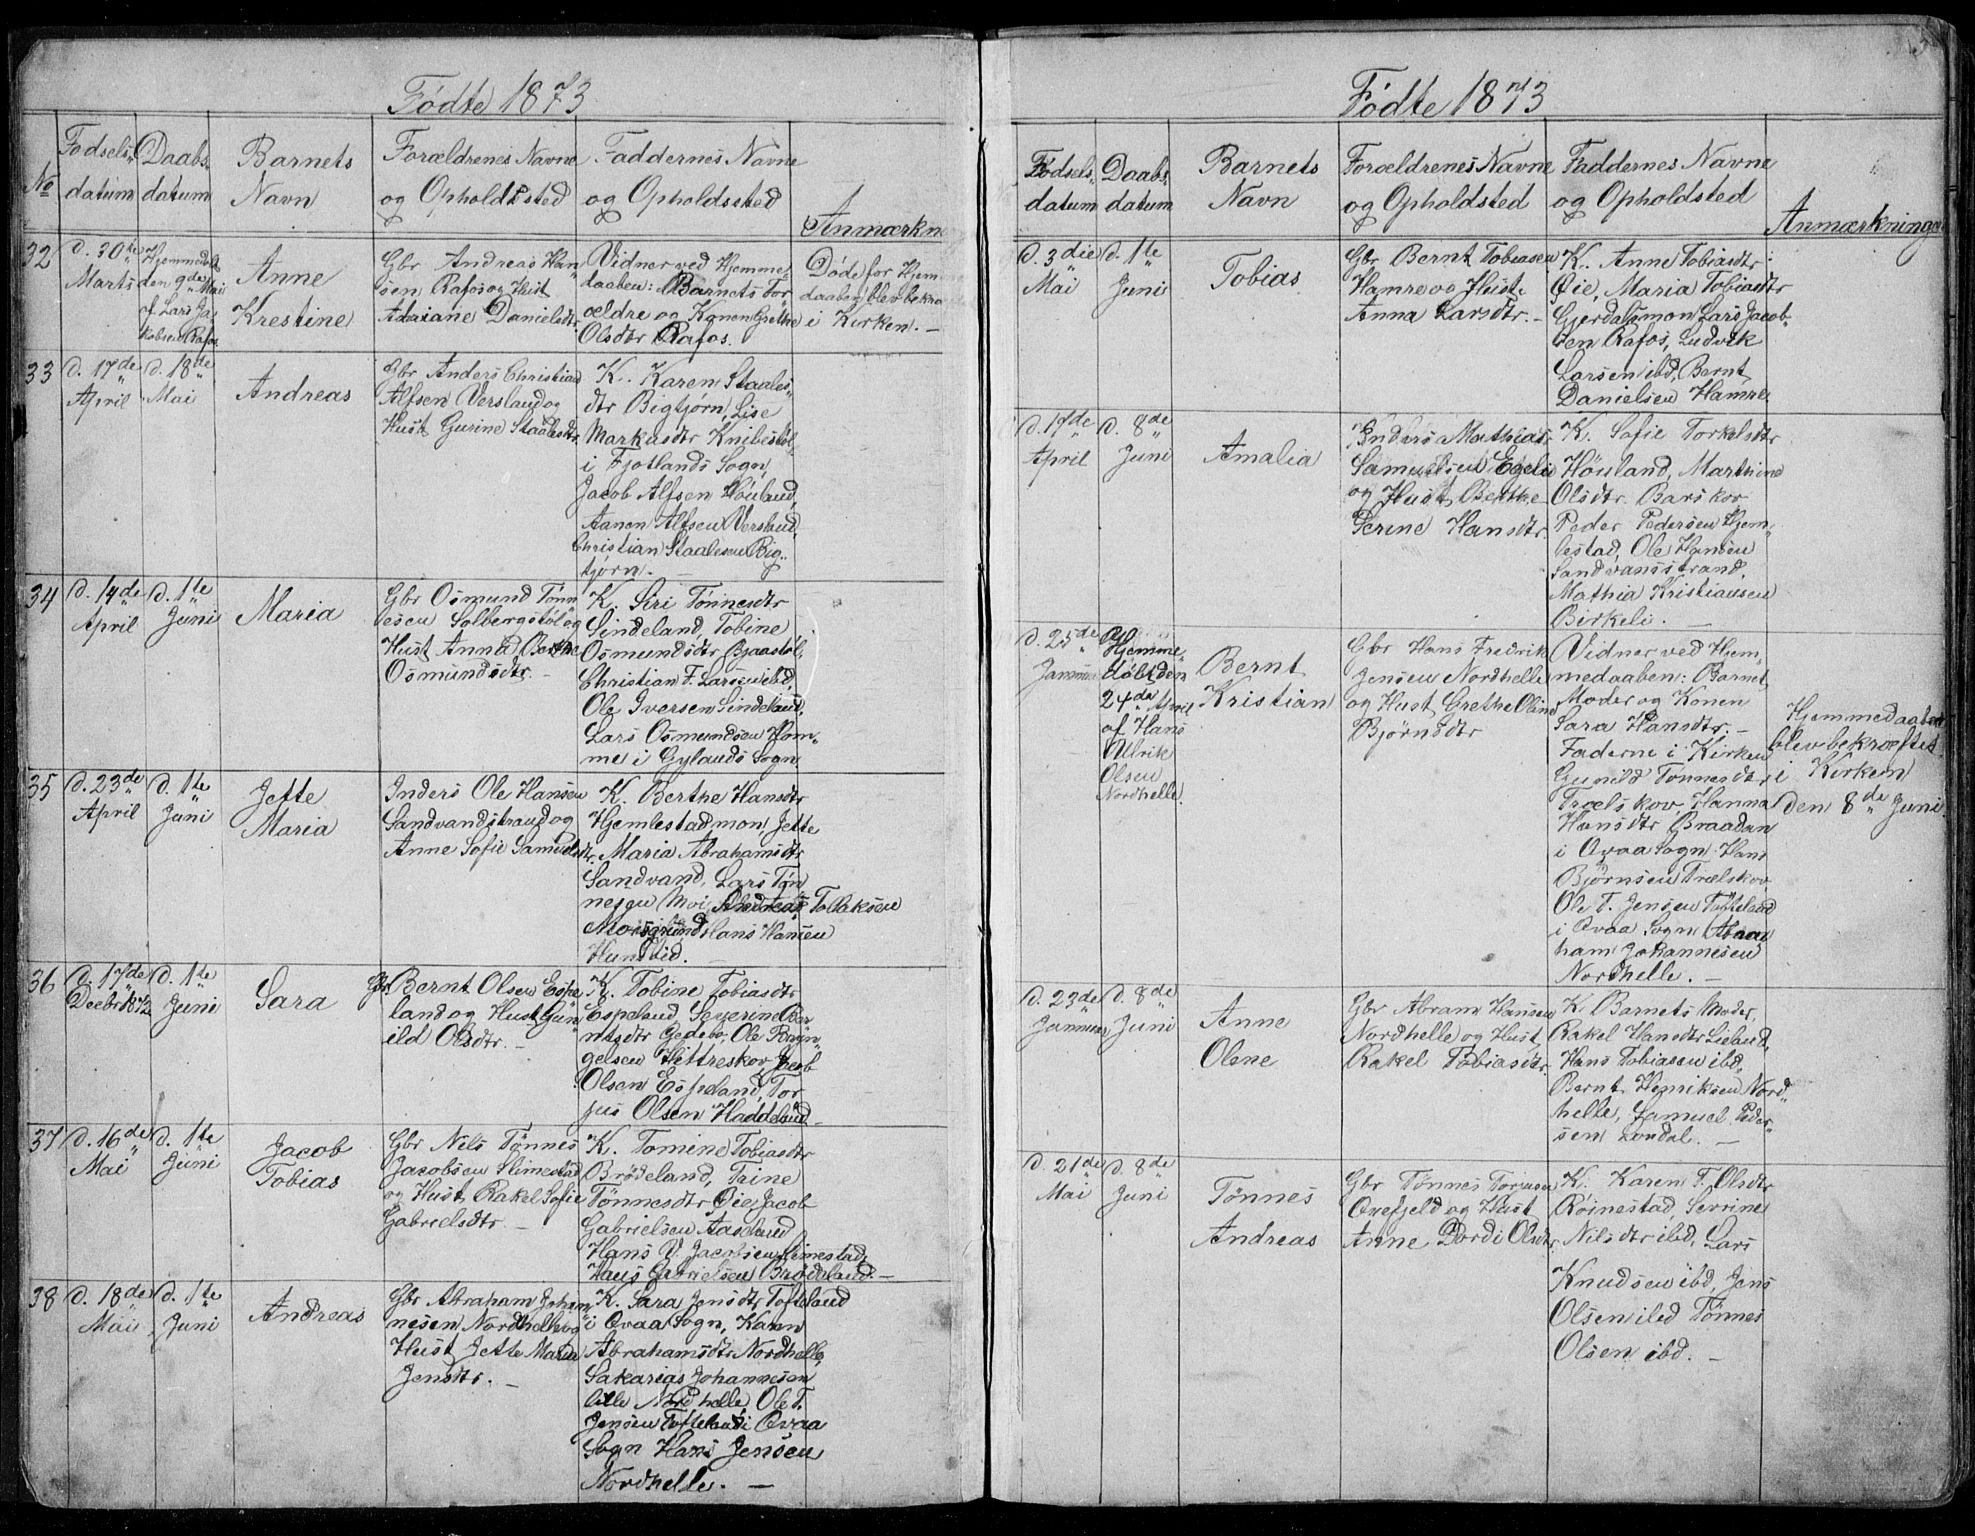 Fødte 1873
No
Fødsels-
datum
Daabs-
datum
Barnets
Navn
Forældrenes Navne
og Opholdssted
Faddernes Navne
og Opholdssted
Anmærkn
32
d. 30te
Marts
Hjemmedøbt
den 9de Mai
af Lars Ja-
kobsen Rafos
Anne
Krestine
Gbr Andreas Han
sen Rafos og Hust
Adriane Danielsdtr
Vidner ved Hjemme-
daaben: Barnets For-
ældre og Konen Grethe
Olsdtr Rafos.
Døde før Hjem
daaben blev bekræ
i Kirken. —
33
d. 17de
April
d. 18de
Mai
Andreas
Gbr Anders Christian
Alfsen Versland og
Hust Gurine Staalesdtr
K. Karen Staales-
dtr Bigtjørn, Lise
Markusdtr Knibestøl
i Fjotlands Sogn,
Jacob Alfsen Høiland,
Aanen Alfsen Versland,
Christian Staalesen Big-
tjørn. —
34
d. 14de
April
d. 1te
Juni
Maria
Gbr Osmund Tønn
esen Solbergstøl og
Hust Anna Berthe
Osmundsdtr. —
K. Siri Tønnesdtr
Sindeland, Tobine
Osmundsdtr Bjaastøl,
Christian F. Larsen ibd,
Ole Iversen Sindeland,
Lars Osmundsen Hom-
me i Gylands Sogn
35
d. 23de
April
d. 1te
Juni
Jette
Maria
Inders Ole Hansen
Sandvandstrand og
Anne Sofie Samuelsdtr.
K. Berthe Hansdtr
Hjemlestadmon, Jette
Maria Abrahamsdtr
Sandvand, Lars Tøn
nesen Moi, Andreas Tollaksen
Moisgrund, Hans Hansen
Hundlid. —
36
d. 17de
Decbr 1872
d. 1te
Juni
Sara
Gbr Bernt Olsen Espe
land og Hust Gun
ild Olsdtr. —
K. Tobine Tobiasdtr
Espeland, Severine Ber
ntsdtr Gedebo, Ole Røyn-
gelsen Hittreskov, Jacob
Olsen Espeland, Tor
jus Olsen Haddeland —
37
d. 16de
Mai
d. 1te
Juni
Jacob
Tobias
Gbr Nils Tønnes
Jacobsen Slimestad
og Hust Rakel Sofie
Gabrielsdtr. —
K. Tomine Tobiasdtr
Brødeland, Trine
Tønnesdtr Øie, Jacob
Gabrielsen Aaseland
Hans V. Jacobsen Slimestad,
Hans Gabrielsen Brødeland. —
38
d. 18de
Mai
d. 1te
Juni
Andreas
Gbr Abraham Johan
nesen Nordhelle og
Hust Jette Maria
Jensdtr. —
K. Sara Jensdtr Tofteland
i Qvaa Sogn, Karen
Abrahamsdtr Nordhelle,
Sakarias Johannesen
lille Nordhelle, Ole T.
Jensen Tofteland i Qvaa
Sogn Hans Jensen
Nordhelle. —
Fødte 1873
Fødsels-
datum
Daabs-
datum
Barnets
Navn
Forældrenes Navne
og Opholdsted
Faddernes Navne
og Opholdsted
Anmærkninger
d. 3die
Mai
d. 1te
Juni
Tobias
Gbr Bernt Tobiasen
Hamre og Hust.
Anna Larsdtr. —
K. Anne Tobiasdtr
Øie, Maria Tobiasdtr
Gjerdalsmon, Lars Jacob-
sen Rafos, Ludvik
Larsen ibd, Bernt
Danielsen Hamre
d. 17de
April
d. 8de
Juni
Amalia
Inders Mathias
Samuelsen Egeli
og Hust Berthe
Serine Hansdtr.
K. Sofie Torkelsdtr
Høiland, Marthine
Olsdtr Barskov
Peder Pedersen Hjem-
lestad, Ole Hansen
Sandvansstrand,
Mathia Kristiansen
Birkeli. —
d. 25de
Januar
Hjemme-
døbt den
24de April
af Hans
Ulrik
Olsen
Nordhelle.
Bernt
Kristian
Gbr Hans Fredrik
Jensen Nordhelle
og Hust Grethe Oline
Bjørnsdtr
Vidner ved Hjem-
medaaben: Barnets
Moder og Konen
Sara Hansdtr. —
Faderne i Kirken
Gunild Tønnesdtr
Trælskov, Hanna
Hansdtr Braaden
i Qvaa Sogn, Hans
Bjørnsen Trælskov,
Ole T. Jensen Tofteland
i Qvaa Sogn, Abra
ham Johannesen
Nordhelle. —
Hjemmedaaben
blev bekræftet
i Kirken
den 8de Juni
d. 23de
Januar
d. 8de
Juni
Anne
Olene
Gbr Abram Hansen
Nordhelle og Hust
Rakel Tobiasdtr.
K. Barnets Moder,
Rakel Hansdtr Lieland,
Hans Tobiasen ibd,
Bernt Henriksen Nord-
helle, Samuel Peder-
sen Londal. —
d. 21de
Mai
d. 8de
Juni
Tønnes
Andreas
Gbr Tønnes Torjusen
Qvefjeld og Hust
Anne Dordi Olsdtr.
K. Karen T. Olsdtr
Røinestad, Serine
Nilsdtr ibd, Lars
Knudsen ibd, Jens
Olsen ibd Tønnes
Olsen ibd. —